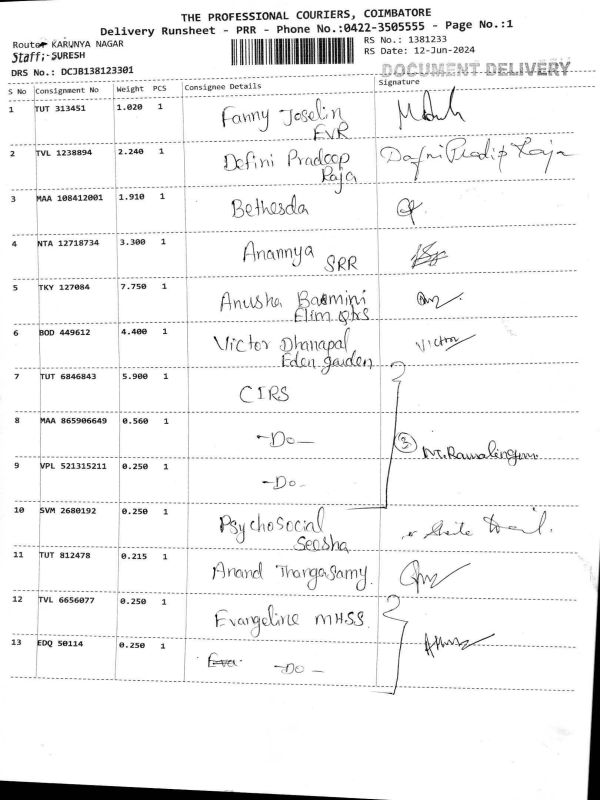 THE PROFESSIONAL COURIERS, COIMBATORE
Delivery Runsheet - PRR - Phone No.:0422-3505555 - Page No.:1
Route: KARUNYA NAGAR
RS No.: 1381233
Staff: SURESH
RS Date: 12-Jun-2024
DRS No.: DCJB138123301
DOCUMENT DELIVERY
S No Consignment No Weight PCS Consignee Details Signature
1 TUT 313451 1.020 1 Fanny Joselin
EVR
2 TVL 1238894 2.240 1 Defini Pradeep Dafni Pradip Raja
Raja
3 MAA 108412001 1.910 1 Bethesda
4 NTA 12718734 3.300 1 Anannya
SRR
5 TKY 127084 7.750 1 Anusha
Elim Qtrs
6 BOD 449612 4.400 1 Victor Dhanapal Victor
Eden garden
7 TUT 6846843 5.900 1 CIRS
8 MAA 865906649 0.560 1 -Do- 3 M.Ramalingam
9 VPL 521315211 0.250 1 -Do-
10 SVM 2680192 0.250 1 Psychosocial
Seesha
11 TUT 812478 0.215 1 Anand Thangasamy
12 TVL 6656077 0.250 1 Evangeline M.H.S.S
13 EDQ 50114 0.250 1 -Do-